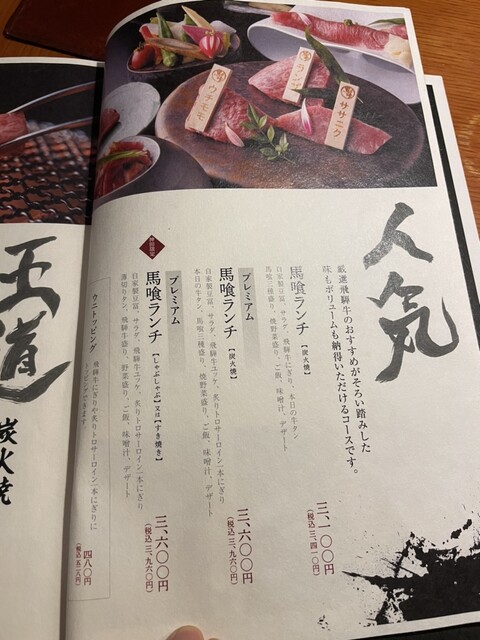 ウチモモ
ランプ
ササニク
人気
厳選飛騨牛のおすすめがそろい踏みした
味もボリュームも納得いただけるコースです。
馬喰ランチ【炭火焼】
自家製豆冨、サラダ、飛騨牛にぎり、本日の牛タン
馬喰三種盛り、焼野菜盛り、ご飯、味噌汁、デザート
三、一〇〇円
(税込 三、四一〇円)
プレミアム
馬喰ランチ【炭火焼】
自家製豆冨、サラダ、飛騨牛ユッケ、炙りトロサーロイン一本にぎり
本日の牛タン、馬喰三種盛り、焼野菜盛り、ご飯、味噌汁、デザート
三、六〇〇円
(税込 三、九六〇円)
プレミアム
馬喰ランチ【しゃぶしゃぶ】又は【すき焼き】
自家製豆冨、サラダ、飛騨牛ユッケ、炙りトロサーロイン一本にぎり
薄切りタン、飛騨牛盛り、野菜盛り、ご飯、味噌汁、デザート
三、六〇〇円
(税込 三、九六〇円)
ウニトッピング
飛騨牛にぎりや炙りトロサーロイン一本にぎりに
トッピングできます。
四八〇円
(税込 五二八円)
王道
炭火焼